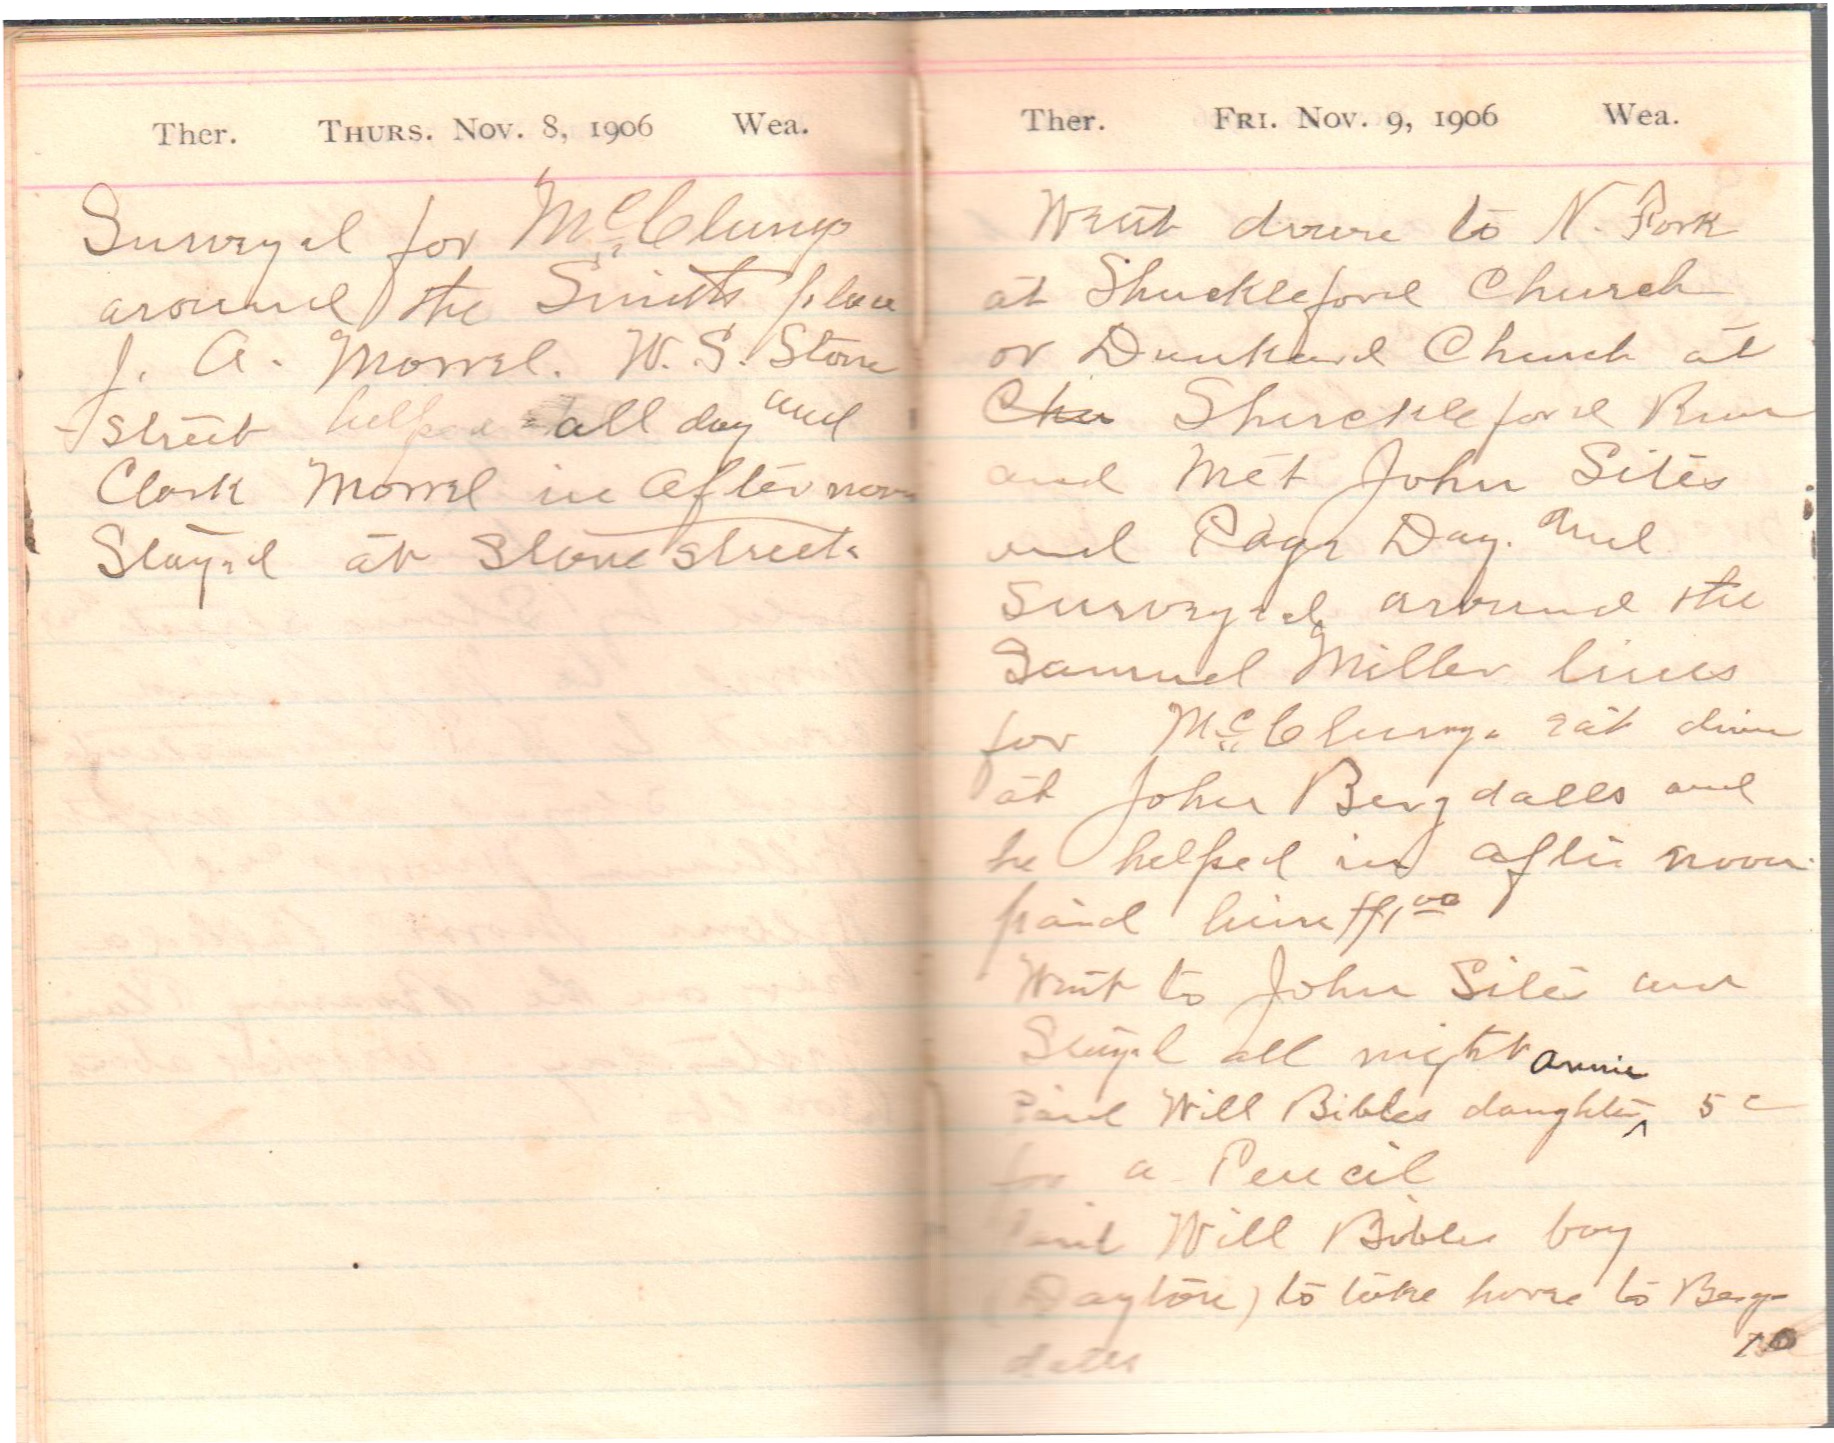 Ther. THURS. NOV. 8, 1906 Wea.
Surveyed for McClungs
around the Smith place
J. A. Morrel. W. S. Stone
street helped all day and
Clark Morrel in afternoon
Stayed at Stonestreets
Ther. FRI. NOV. 9, 1906 Wea.
Went down to N. Fork
at Shuckleford Church
or Dunkard Church at
Chu Shuckleford Run
and Met John Sites
and Page Day. and
Surveyed around the
Samuel Miller lines
for McClung. eat dinner
at John Bergdalls and
he helped in after noon.
paid him $1.00
Went to John Sites and
Stayed all night
Paid Will Bibles daughter ^ Annie 5c
for a Pencil
Paid Will Bibles boy
(Dayton) to take horse to Berg-
dalls 10